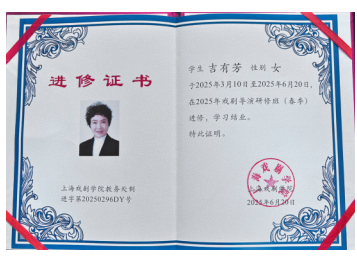 进修证书
上海戏剧学院教务处制
进字第20250296DY号
学生 吉有芳 性别 女
于2025年3月10日至2025年6月20日,
在2025年戏剧导演研修班（春季）
进修，学习结业。
特此证明。
上海戏剧学院
上海戏剧学院
2025年6月20日